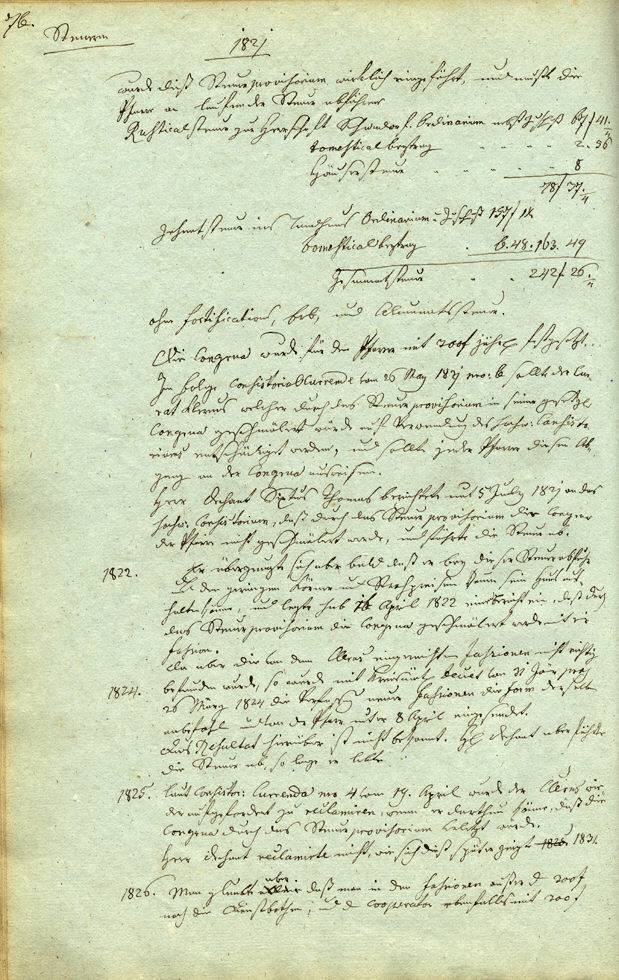 76.
Steuern
1821
wurde dieß Steuerprovisorium wirklich eingeführt, und mußte die
Pfarre an laufender Steuer abführen
Rusticalsteuer zur Herrschaft Ordinarium 67/41.
Domesticalbeytrag 2.36
Häusersteuer 8
78/37.
Zehentsteuer ins Landhaus Ordinarium u. Zuschuß 157/
Domesticalbeytrag 49
Gesammtsteuer 242/.26.
ohne Fortifications, Erb, und Alumnatssteuer.
Die Congrua wurde für den Pfarrer mit 200f jährl. festgesetzt.
In Folge Consistorial Currende vom 26 May 1821 nro: 6 sollte der Cu-
rat Klerus welcher durch das Steuerprovisorium in seiner gesetzl.
Congrua geschmälert würde auf Verwendung des hochw: Consisto-
riums entschädiget werden, und sollte jeder Pfarrer diesen Ab-
gang an der Congrua ausweisen.
Herr Dechant Thomas berichtete mit 5 July 1821 an das
hochw: Consistorium, daß durch das Steuerprovisorium die Congrua
der Pfarre nicht geschmälert werde, und führte die Steuer ab.
1822. Er überzeugte sich aber bald daß er bey dieser Steuerabfuhr
den geringen Körner und kaum sein Haus er-
halten könne, und legte sub April 1822 einen Bericht ein, daß durch
das Steuerprovisorium die Congrua geschmälert werde mit
Fassion.
1824. Da aber die von dem Clerus eingereichten Fassionen nicht richtig
befunden wurden, so wurde mit Decret vom
26 März 1824 die Verfassung neuer Fassionen die Form derselben
anbefohl. und von der Pfarr unter 8 April eingesendet.
Das Resultat hierüber ist nicht bekannt. H. Dechant aber führte
die Steuer ab, so lage er lebte.
1825. Laut Consistor: Currenda nro 4 vom 19. April wurde der Clerus wie-
der aufgefordert zu reclamiren, wenn er darthun könne, daß die
Congrua durch das Steuerprovisorium verletzt werde.
Herr Dechant reclamirte nicht, wie sich dieß später zeigte 1831.
1826. Man glaubte aber daß man in den Fassionen außer d 200f
noch die Dienstbothen, und d Cooperator ebenfalls mit 200f